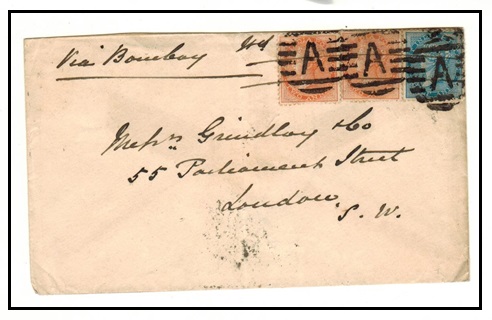 Via Bombay
A A A
Messrs Grindlay & Co
55 Parliament Street
London.
S. W.